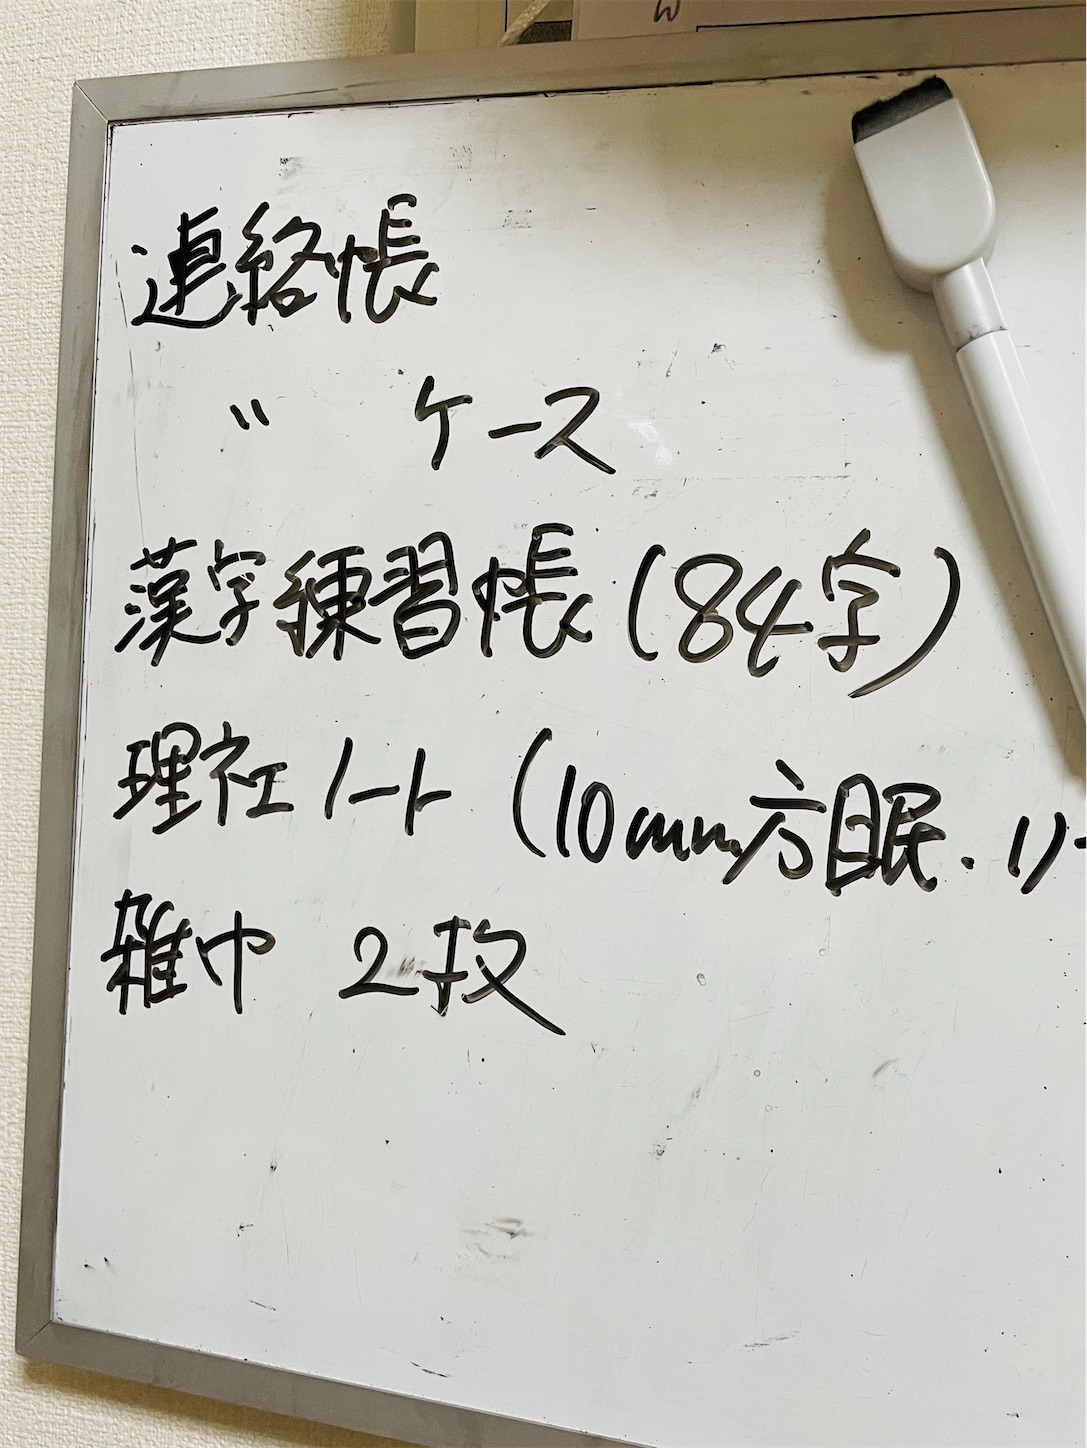 連絡帳
〃 ケース
漢字練習帳(84字)
理社ノート (10mm方眠.リ
雑巾 2枚